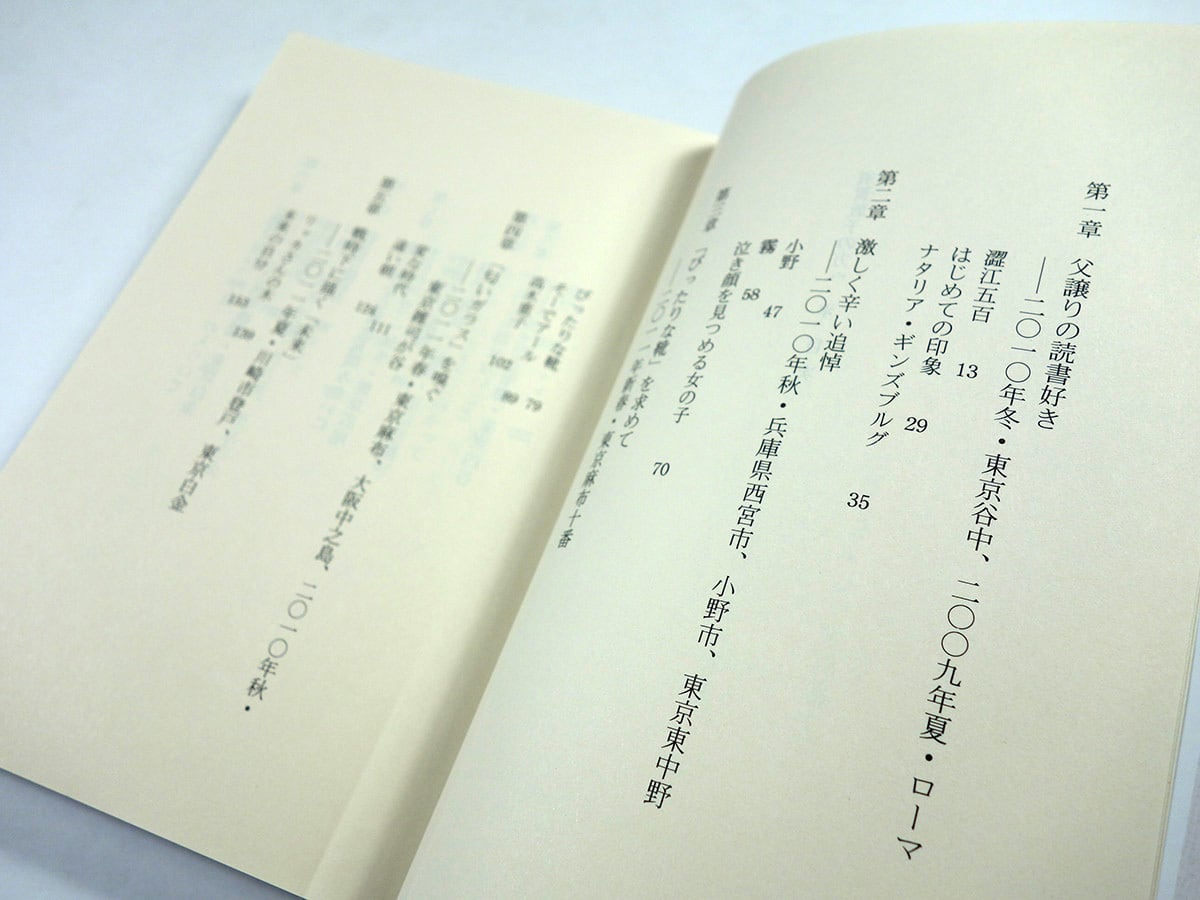 第一章　父譲りの読書好き
――二〇一〇年冬・東京谷中、二〇〇九年夏・ローマ
澀江五百　13
はじめての印象　29
ナタリア・ギンズブルグ　35
第二章　激しく辛い追悼
――二〇一〇年秋・兵庫県西宮市、小野市、東京東中野
小野　47
霧　58
泣き顔を見つめる女の子　70
第三章　「ぴったりな靴」を求めて
――二〇一一年新春・東京麻布十番
ぴったりな靴　79
高木重子　89
そしてアール　102
第四章　「匂いガラス」を嗅ぐ
――二〇一一年春・東京麻布、大阪中之島、二〇一〇年秋・
東京雑司が谷
東公時代　111
遠い朝　124
第五章　戦時下に描く「未来」
――二〇一一年夏・川崎市登戸、東京白金